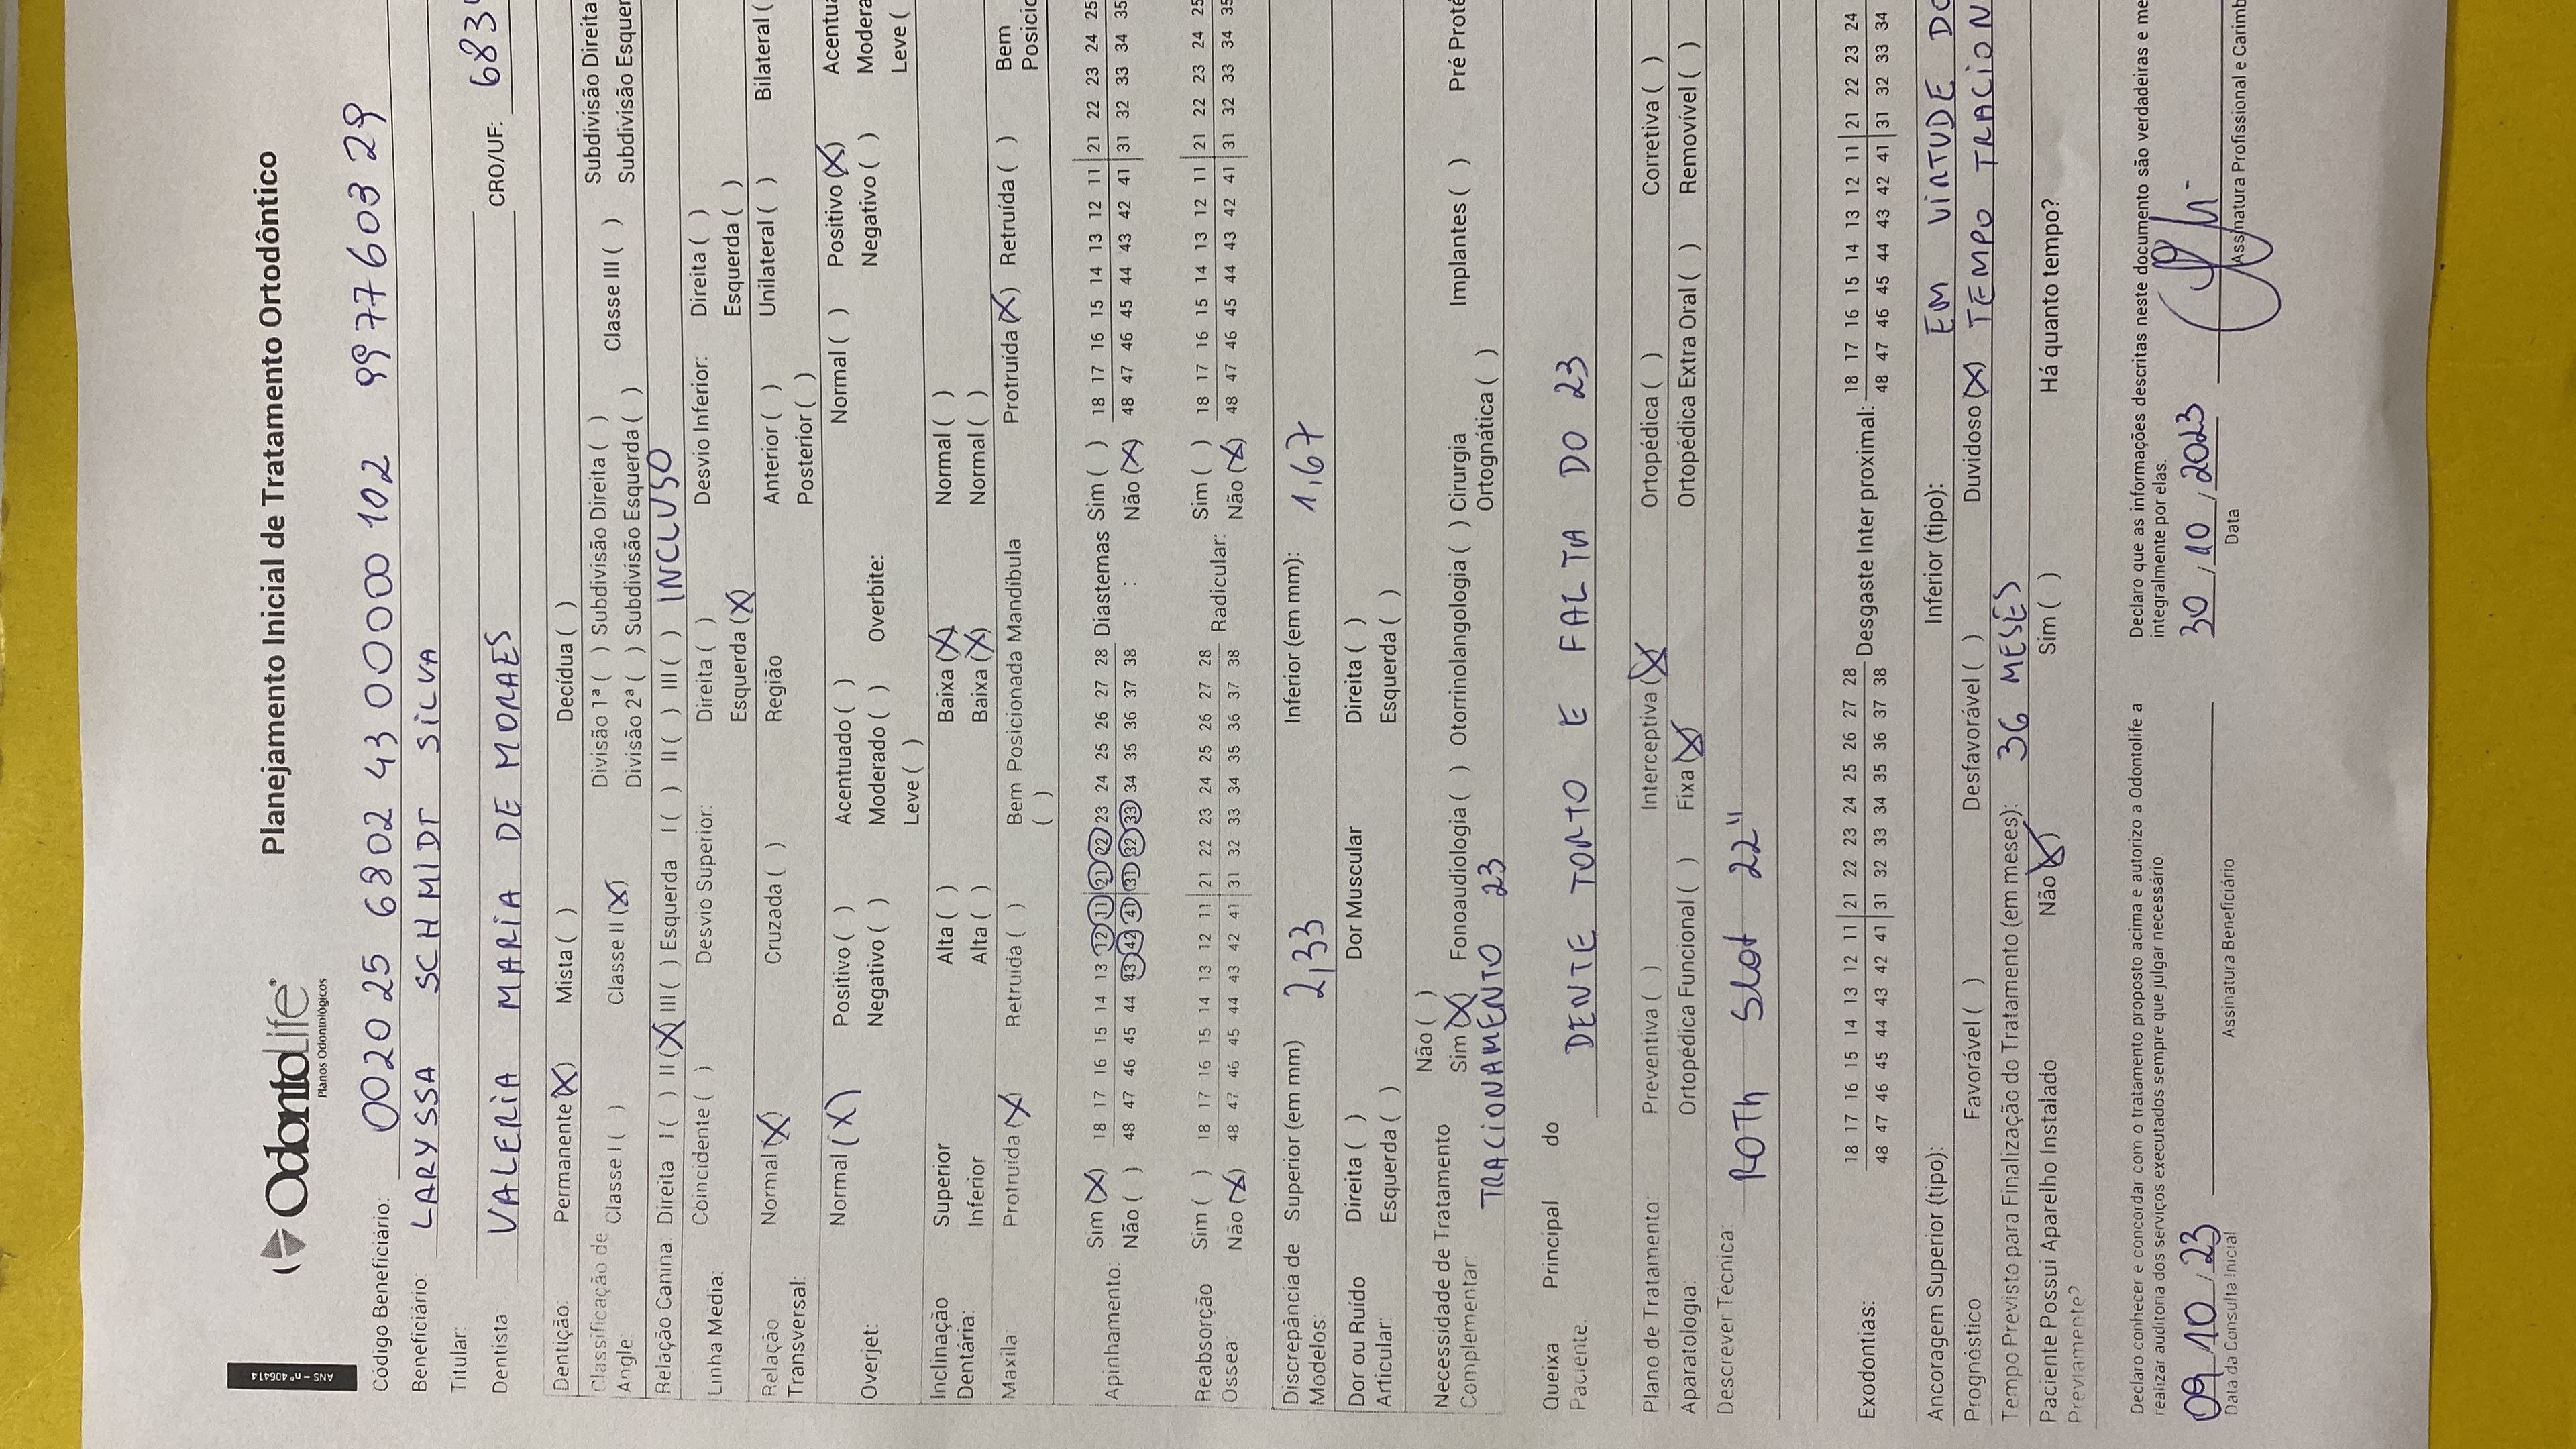 ANS - nº 406414
OdontoLife®
Planos Odontológicos
Planejamento Inicial de Tratamento Ortodôntico
Código Beneficiário: 0020 25 6802 43 00000 102 9977603 29
Beneficiário: LARYSSA SCHMIDT SILVA
Titular:
Dentista VALERIA MARIA DE MORAES CRO/UF: 683
Dentição: Permanente (X) Mista ( ) Decídua ( )
Classificação de Angle: Classe I ( ) Classe II (X) Divisão 1ª ( ) Subdivisão Direita ( ) Classe III ( ) Subdivisão Direita
Divisão 2ª ( ) Subdivisão Esquerda ( ) Subdivisão Esquer
Relação Canina: Direita I ( ) II (X) III ( ) Esquerda I ( ) II ( ) III ( ) INCLUSO
Linha Media: Coincidente ( ) Desvio Superior: Direita ( ) Desvio Inferior: Direita ( )
Esquerda (X) Esquerda ( )
Relação Transversal: Normal (X) Cruzada ( ) Região Anterior ( ) Unilateral ( ) Bilateral (
Posterior ( )
Overjet: Normal (X) Positivo ( ) Acentuado ( ) Overbite: Normal ( ) Positivo (X) Acentua
Negativo ( ) Moderado ( ) Negativo ( ) Modera
Leve ( ) Leve (
Inclinação Dentária: Superior Alta ( ) Baixa (X) Normal ( )
Inferior Alta ( ) Baixa (X) Normal ( )
Maxila Protruída (X) Retruída ( ) Bem Posicionada ( ) Mandíbula Protruída (X) Retruída ( ) Bem Posicio
Apinhamento: Sim (X) 18 17 16 15 14 13 12 11 21 22 23 24 25 26 27 28 Diastemas : Sim ( ) 18 17 16 15 14 13 12 11 21 22 23 24 25
Não ( ) 48 47 46 45 44 43 42 41 31 32 33 34 35 36 37 38 Não (X) 48 47 46 45 44 43 42 41 31 32 33 34 35
Reabsorção Ossea: Sim ( ) 18 17 16 15 14 13 12 11 21 22 23 24 25 26 27 28 Radicular: Sim ( ) 18 17 16 15 14 13 12 11 21 22 23 24 25
Não (X) 48 47 46 45 44 43 42 41 31 32 33 34 35 36 37 38 Não (X) 48 47 46 45 44 43 42 41 31 32 33 34 35
Discrepância de Modelos: Superior (em mm) 2,33 Inferior (em mm): 1,67
Dor ou Ruído Articular: Direita ( ) Dor Muscular Direita ( )
Esquerda ( ) Esquerda ( )
Necessidade de Tratamento Complementar: Não ( )
Sim (X) Fonoaudiologia ( ) Otorrinolangologia ( ) Cirurgia Ortognática ( ) Implantes ( ) Pré Proté
TRACIONAMENTO 23
Queixa Principal do Paciente. DENTE TORTO E FALTA DO 23
Plano de Tratamento: Preventiva ( ) Interceptiva (X) Ortopédica ( ) Corretiva ( )
Aparatologia: Ortopédica Funcional ( ) Fixa (X) Ortopédica Extra Oral ( ) Removível ( )
Descrever Técnica: ROTH Slot 22"
Exodontias: 18 17 16 15 14 13 12 11 21 22 23 24 25 26 27 28 Desgaste Inter proximal: 18 17 16 15 14 13 12 11 21 22 23 24
48 47 46 45 44 43 42 41 31 32 33 34 35 36 37 38 48 47 46 45 44 43 42 41 31 32 33 34
Ancoragem Superior (tipo): Inferior (tipo): EM VIRTUDE DO
Prognóstico Favorável ( ) Desfavorável ( ) Duvidoso (X) TEMPO TRACION
Tempo Previsto para Finalização do Tratamento (em meses): 36 MESES
Paciente Possui Aparelho Instalado Previamente? Não (X) Sim ( ) Há quanto tempo?
Declaro conhecer e concordar com o tratamento proposto acima e autorizo a Odontolife a
realizar auditoria dos serviços executados sempre que julgar necessário
Declaro que as informações descritas neste documento são verdadeiras e me
integralmente por elas.
09/10/23 30/10/2023
Data da Consulta Inicial Assinatura Beneficiário Data Assinatura Profissional e Carimb